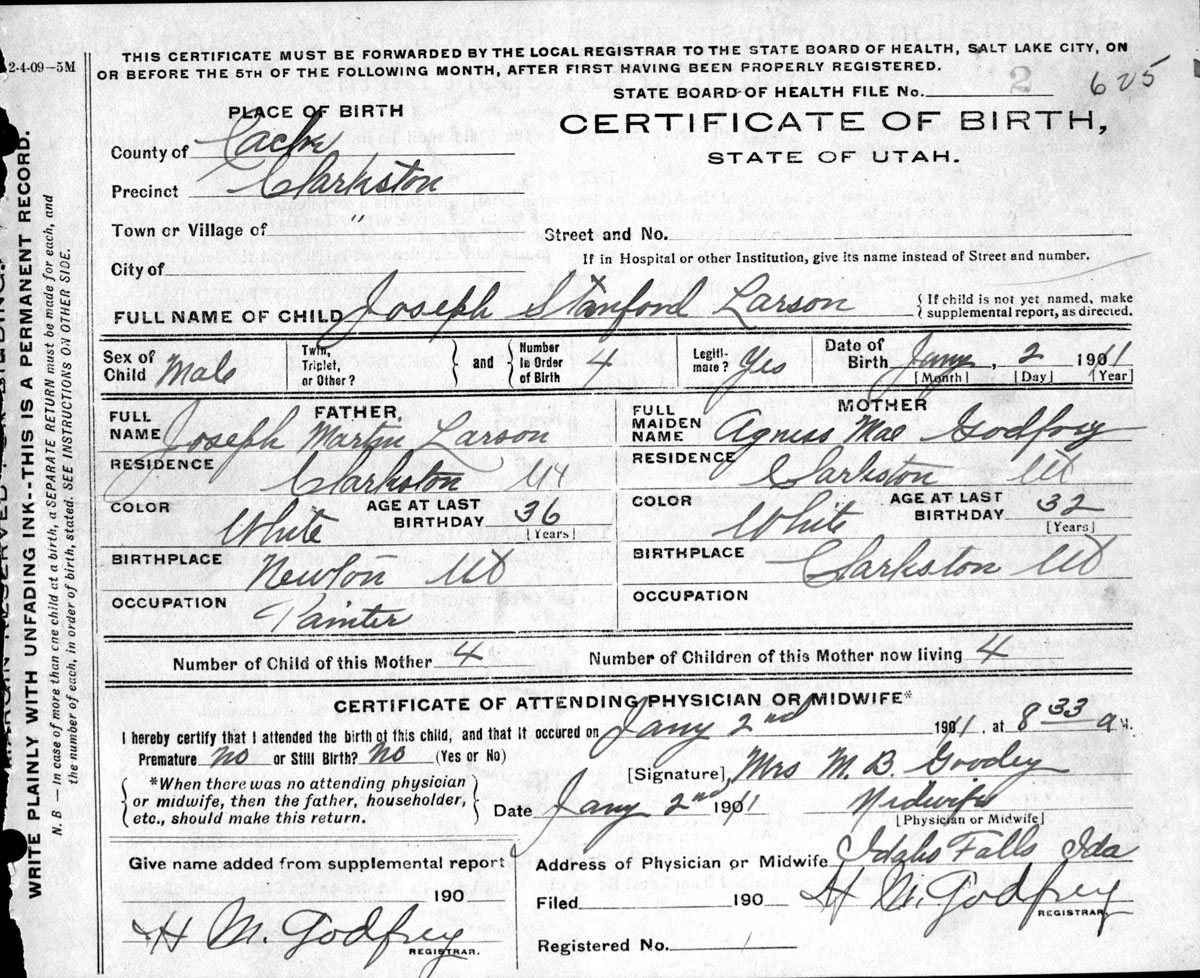 2-4-09-5M
THIS CERTIFICATE MUST BE FORWARDED BY THE LOCAL REGISTRAR TO THE STATE BOARD OF HEALTH, SALT LAKE CITY, ON
OR BEFORE THE 5TH OF THE FOLLOWING MONTH, AFTER FIRST HAVING BEEN PROPERLY REGISTERED.
STATE BOARD OF HEALTH FILE No. 2 625
PLACE OF BIRTH
CERTIFICATE OF BIRTH,
STATE OF UTAH.
County of Cache
Precinct Clarkston
Town or Village of "
Street and No.
If in Hospital or other Institution, give its name instead of Street and number.
City of
FULL NAME OF CHILD Joseph Stanford Larson
{ If child is not yet named, make
supplemental report, as directed.
Sex of Child Male
Twin, Triplet, or Other?
and
Number in Order of Birth 4
Legiti-mate? Yes
Date of Birth Jany, 2 1911
[Month] [Day] [Year]
FATHER,
FULL NAME Joseph Martin Larson
RESIDENCE Clarkston Ut
COLOR White
AGE AT LAST BIRTHDAY 36
[Years]
BIRTHPLACE Newton Ut
OCCUPATION Painter
MOTHER
FULL MAIDEN NAME Agness Mae Godfrey
RESIDENCE Clarkston Ut
COLOR White
AGE AT LAST BIRTHDAY 32
[Years]
BIRTHPLACE Clarkston Ut
OCCUPATION
Number of Child of this Mother 4
Number of Children of this Mother now living 4
CERTIFICATE OF ATTENDING PHYSICIAN OR MIDWIFE*
I hereby certify that I attended the birth of this child, and that it occured on Jany 2nd 1911, at 8 33 a M.
Premature no or Still Birth? no (Yes or No)
*When there was no attending physician
or midwife, then the father, householder,
etc., should make this return.
[Signature], Mrs M. B. Goodey
Date Jany 2nd 1911
Midwife
[Physician or Midwife]
Give name added from supplemental report
190
H M. Godfrey
REGISTRAR.
Address of Physician or Midwife Idaho Falls Ida
Filed 190
H M. Godfrey
REGISTRAR.
Registered No. 1
WRITE PLAINLY WITH UNFADING INK--THIS IS A PERMANENT RECORD.
N. B — In case of more than one child at a birth, a SEPARATE RETURN must be made for each, and
the number of each, in order of birth, stated. SEE INSTRUCTIONS ON OTHER SIDE.